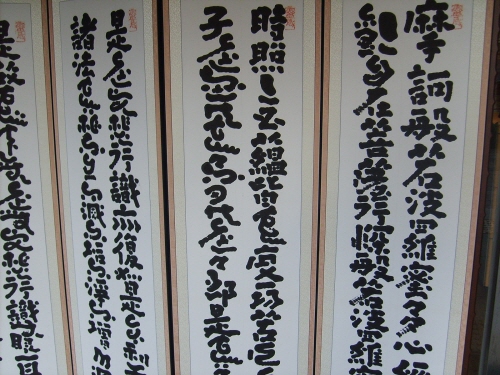 摩訶般若波羅蜜多心経
観自在菩薩行深般若波羅蜜
時照見五蘊皆空度一切苦厄
子色不異空空不異色色即是空
是受想行識亦復如是舎利子
諸法空相不生不滅不垢不浄不増不減
是故空中無色無受想行識無眼耳